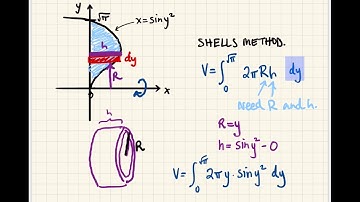 y
√π
x=siny²
h
dy
R
x
h
R
SHELLS METHOD.
V=∫₀^√π 2πRh dy
Need R and h.
R=y
h=siny²-0
V=∫₀^√π 2πy·siny² dy